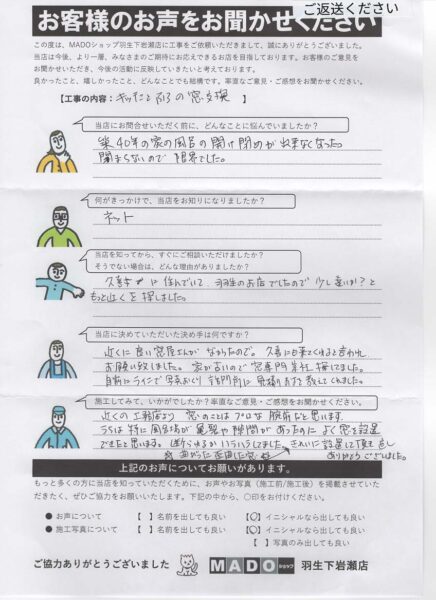 ご返送ください
お客様のお声をお聞かせください
この度は、MADOショップ羽生下岩瀬店に工事をご依頼いただきまして、誠にありがとうございました。
当店は今後、より一層、みなさまのご期待にお応えできるお店を目指しております。お客様のご意見を
お聞かせいただき、今後の活動に反映していきたいと考えております。
良かったこと、嬉しかったこと、どんなことでも結構です。率直なご意見・ご感想をお聞かせください。
【工事の内容: キッチンとお風呂の窓交換 】
当店にお問合せいただく前に、どんなことに悩んでいましたか？
築40年の家の風呂の開け閉めが出来なくなった。
閉まらないので限界でした。
何がきっかけで、当店をお知りになりましたか？
ネット
当店を知ってから、すぐにご相談いただけましたか？
そうでない場合は、どんな理由がありましたか？
久喜市に住んでいて、羽生のお店でしたので少し遠いか？と
もっと近くを探しました。
当店に決めていただいた決め手は何ですか？
近くに良い窓屋さんがなかったので。久喜にも来てくれると言われ
お願い致しました。窓が古いので窓専門業社探してました。
自前にラインで写真おくり 訪問前に見積り
教えてくれました。
施工してみて、いかがでしたか？率直なご意見・ご感想をお聞かせください。
近くの工務店より 窓のことはプロな腕前だと思います
うちは特に風呂場が亀裂や隙間があったのによく窓を設置
できたと思います。 きれいに設置して頂き
ありがとうございました。
上記のお声についてお願いがあります。
もっと多くの方に当店を知っていただくために、お声やお写真（施工前/施工後）を掲載させていた
だきたく、ぜひご協力をお願いいたします。下記の中から、〇印をお付けください。
● お声について 【 】名前を出しても良い 【〇】イニシャルなら出しても良い
● 施工写真について 【 】名前を出しても良い 【〇】イニシャルなら出しても良い
【 】写真のみ出しても良い
ご協力ありがとうございました MADOショップ 羽生下岩瀬店